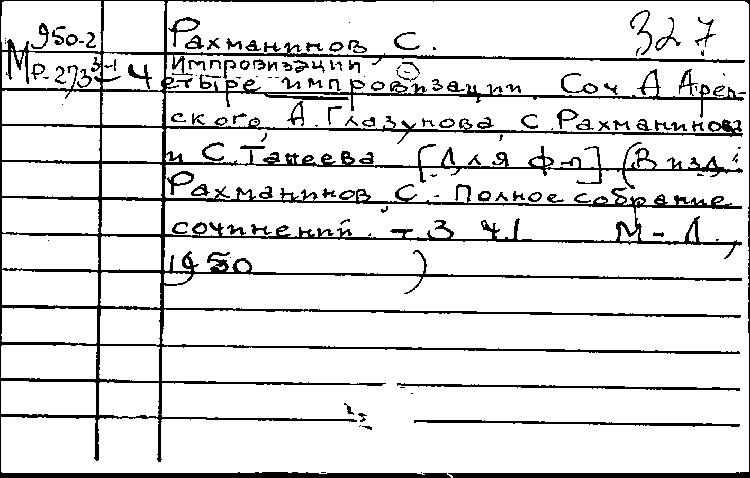 950-2
М Р-273 3-1
327
Рахманинов, С.
Импровизации
Четыре импровизации. Соч. А. Арен-
ского, А. Глазунова, С. Рахманинова
и С. Танеева [Для ф-п] (В изд.:
Рахманинов, С. Полное собрание
сочинений. т 3 ч. 1 М-Л.,
1950 )